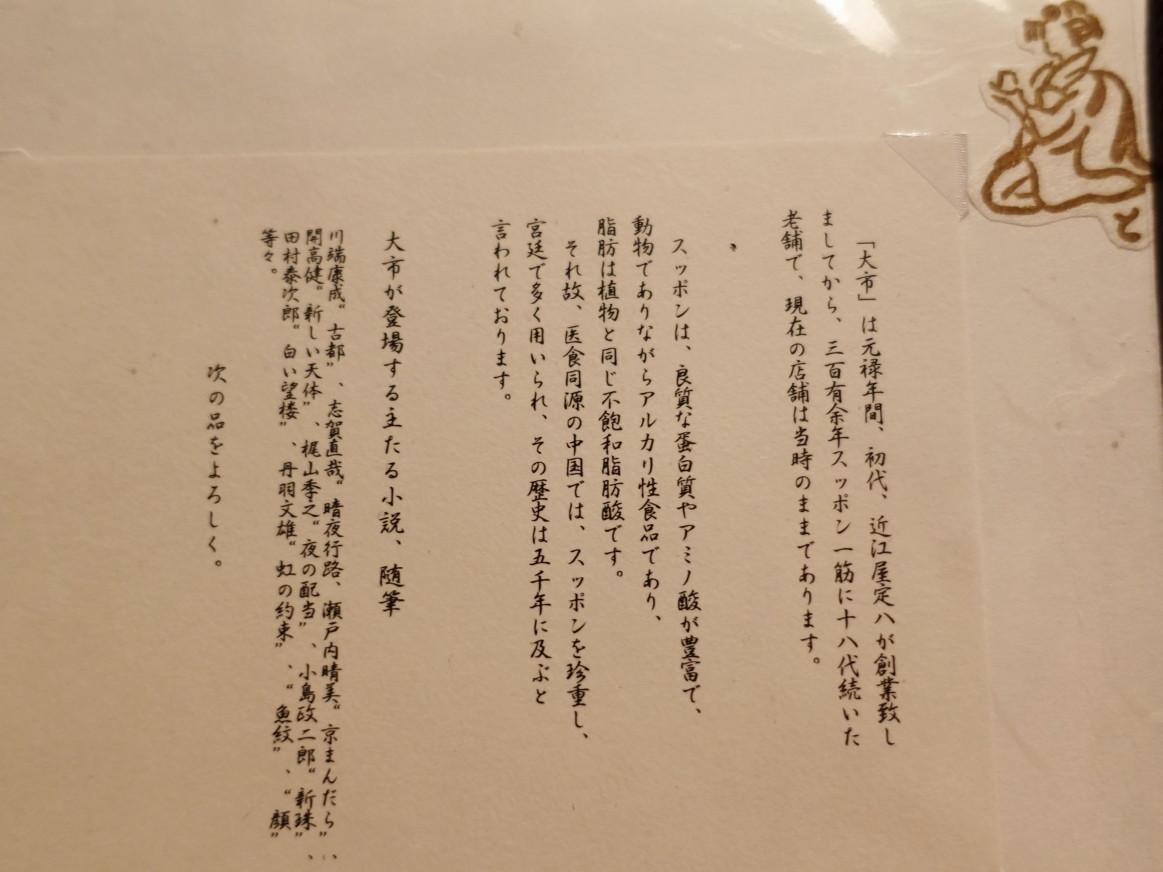 「大市」は元禄年間、初代、近江屋定八が創業致し
ましてから、三百有余年スッポン一筋に十八代続いた
老舗で、現在の店舗は当時のままであります。
スッポンは、良質な蛋白質やアミノ酸が豊富で、
動物でありながらアルカリ性食品であり、
脂肪は植物と同じ不飽和脂肪酸です。
それ故、医食同源の中国では、スッポンを珍重し、
宮廷で多く用いられ、その歴史は五千年に及ぶと
言われております。
大市が登場する主たる小説、随筆
川端康成“古都”、志賀直哉“暗夜行路、瀬戸内晴美“京まんだら”、
開高健“新しい天体”、梶山季之“夜の配当”、小島政二郎“新珠”、
田村泰次郎“白い望楼”、丹羽文雄“虹の約束”、“魚紋”、“顔”
等々。
次の品をよろしく。
と